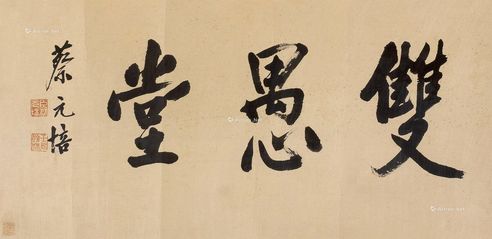 雙愚堂
蔡元培